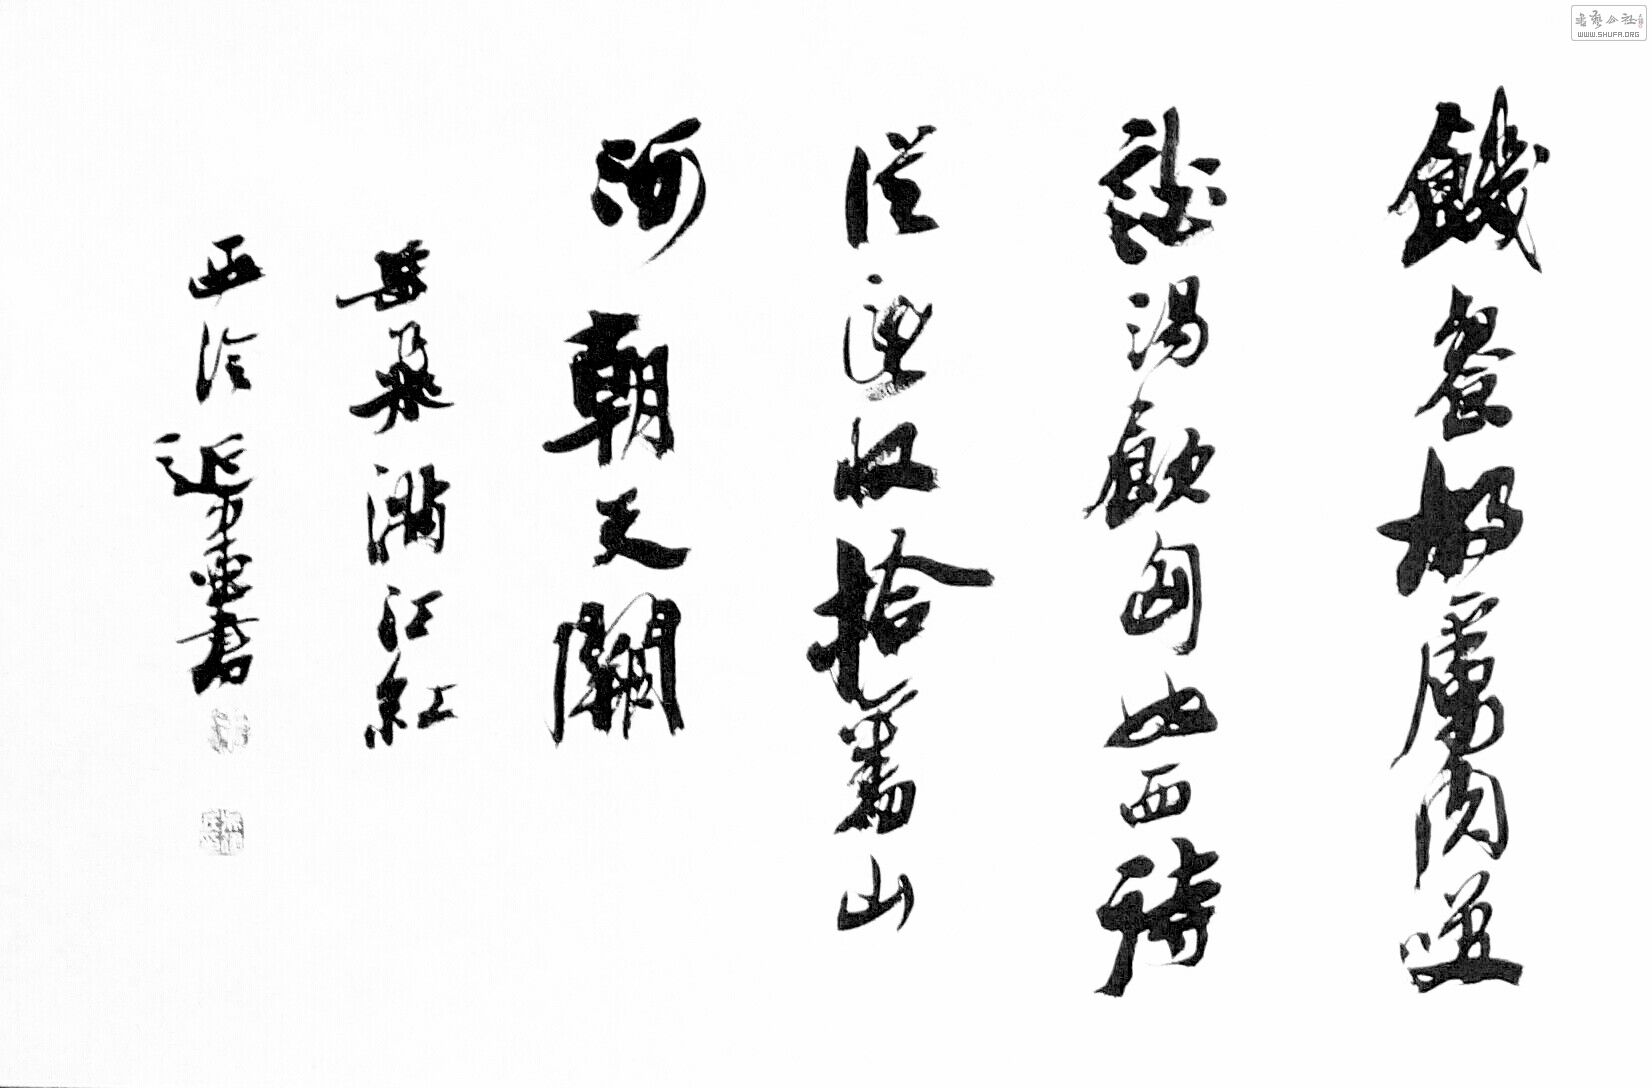 饑餐胡虜肉咲
談渴飲匈奴血待
從頭收拾舊山
河朝天闕
岳飛滿江紅
西泠書
書藝公社
WWW.SHUFA.ORG